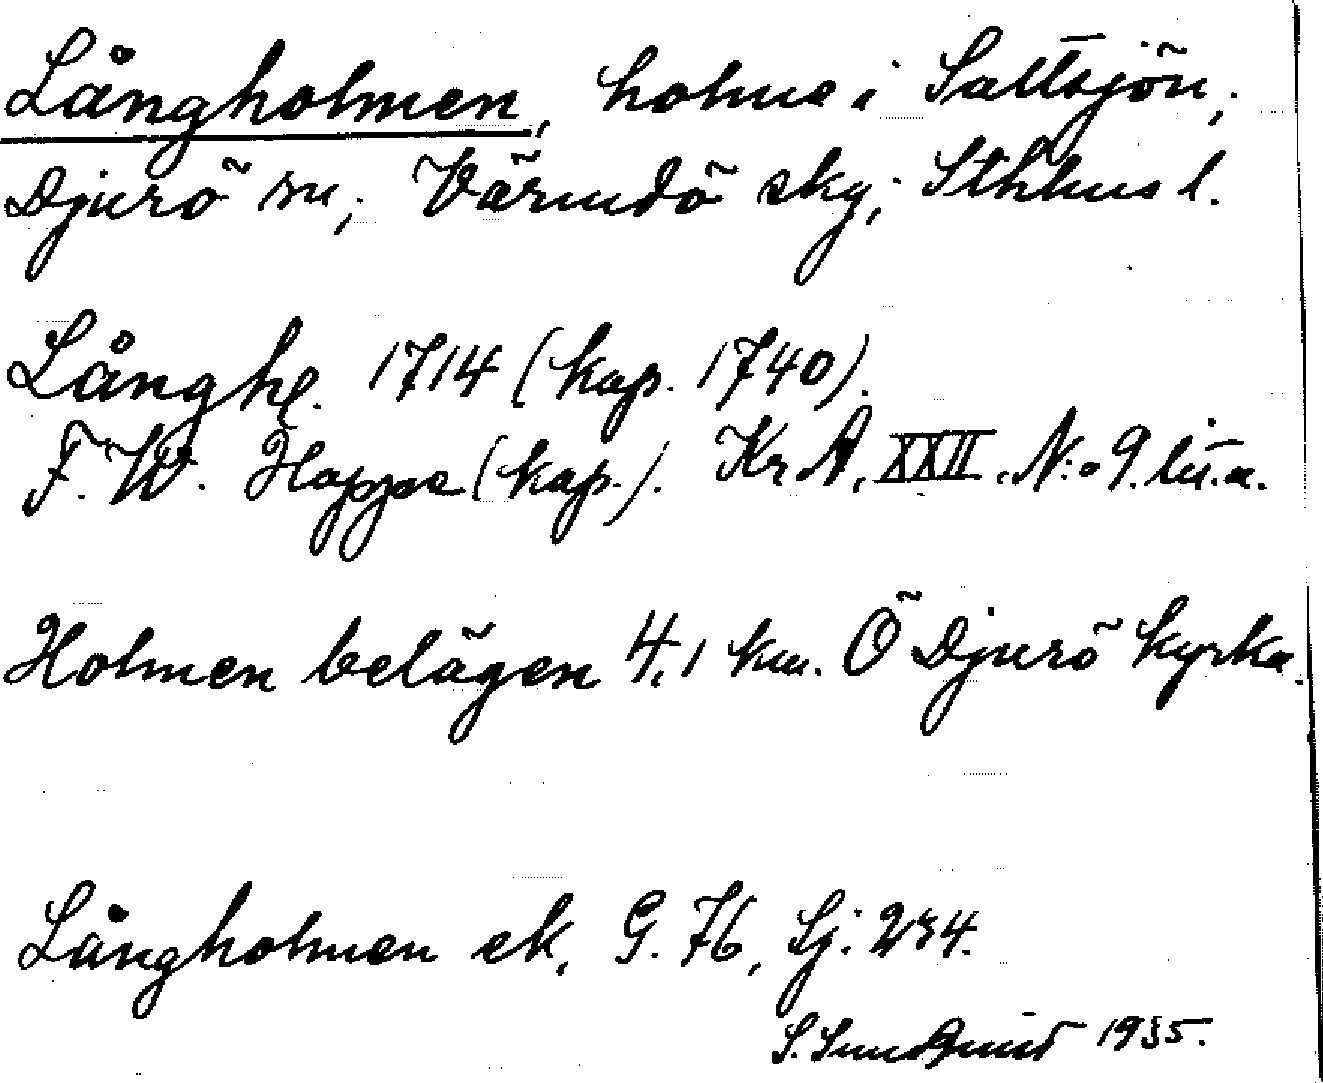 Långholmen, holme i Saltsjön,
Djurö sn, Värmdö sky, Sthlms l.
Långhl. 1714 (kop. 1740).
F. W. Hoppe (kop.). KrA, XXII. N:o 9. litt. a.
Holmen belägen 4,1 km. Ö Djurö kyrka.
Långholmen ek, G. 76, Sj: 234.
S. Sundquist 1935.